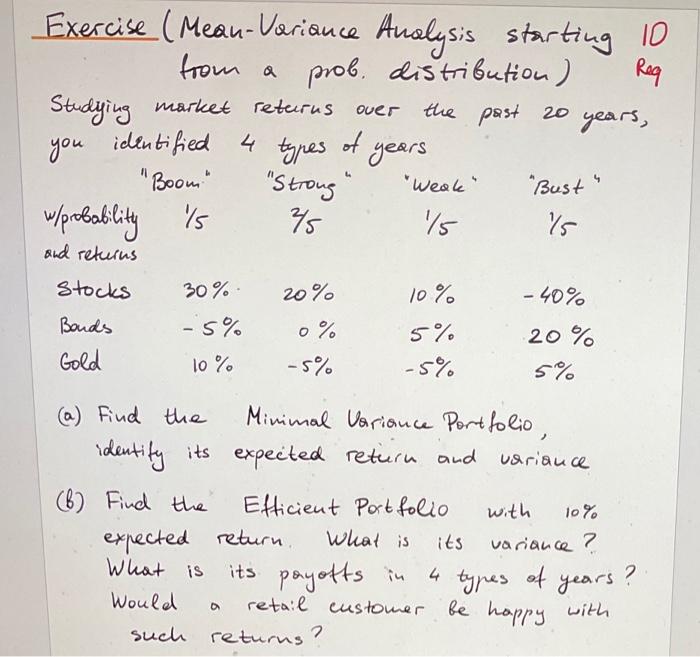 Exercise (Mean-Variance Analysis starting 10
from a prob. distribution) Req
Studying market returns over the past 20 years,
you identified 4 types of years
"Boom" "Strong" "Weak" "Bust"
w/probability 1/5 2/5 1/5 1/5
and returns
Stocks 30% 20% 10% -40%
Bonds -5% 0% 5% 20%
Gold 10% -5% -5% 5%
(a) Find the Minimal Variance Portfolio,
identify its expected return and variance
(b) Find the Efficient Portfolio with 10%
expected return. What is its variance?
What is its payoffs in 4 types of years?
Would a retail customer be happy with
such returns?